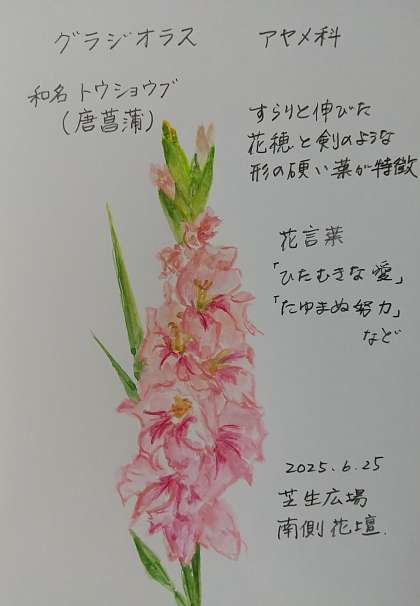 グラジオラス アヤメ科
和名 トウショウブ
(唐菖蒲)
すらりと伸びた
花穂と剣のような
形の硬い葉が特徴
花言葉
「ひたむきな愛」
「たゆまぬ努力」
など
2025.6.25
芝生広場
南側花壇.